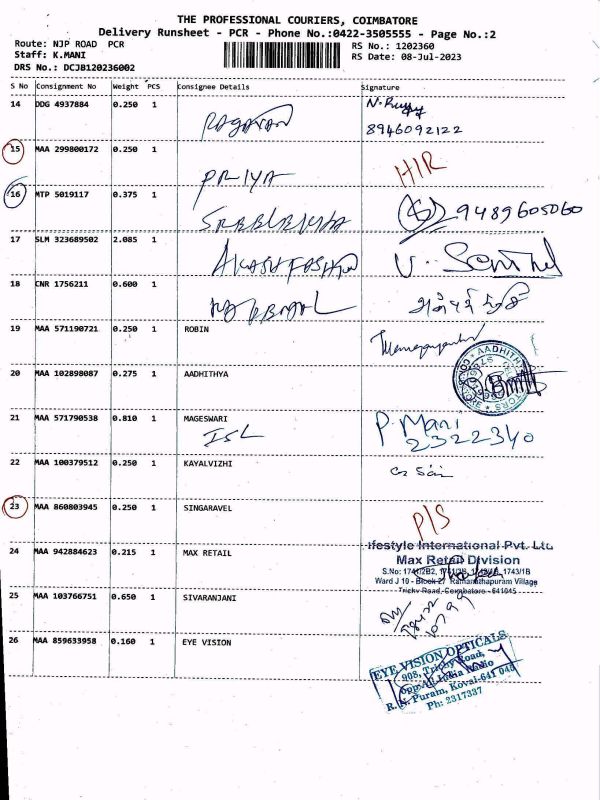 THE PROFESSIONAL COURIERS, COIMBATORE
Delivery Runsheet - PCR - Phone No.:0422-3505555 - Page No.:2
Route: NJP ROAD PCR
RS No.: 1202360
Staff: K.MANI
RS Date: 08-Jul-2023
DRS No.: DCJB120236002
S No Consignment No Weight PCS Consignee Details Signature
14 DDG 4937884 0.250 1 RAGAVAN
8946092122
15 MAA 299800172 0.250 1 PRIYA H/R
16 MTP 5019117 0.375 1 9489605060
17 SLM 323689502 2.085 1 AKASH FASHION V. Senthil
18 CNR 1756211 0.600 1
19 MAA 571190721 0.250 1 ROBIN
20 MAA 102898087 0.275 1 AADHITHYA
AADHITH
21 MAA 571790538 0.810 1 MAGESWARI P. Mani
ISL 2322340
22 MAA 100379512 0.250 1 KAYALVIZHI
23 MAA 860803945 0.250 1 SINGARAVEL P/S
24 MAA 942884623 0.215 1 MAX RETAIL
ifestyle International Pvt. Ltd
Max Retail Division
S.No: 1741/2B2, 1741/2B, 1743/1B
Ward J 10 - Block 27 Ramanathapuram Village
Tricky Road, Coimbatore - 641045
25 MAA 103766751 0.650 1 SIVARANJANI
26 MAA 859633958 0.160 1 EYE VISION
EYE VISION OPTICALS
903, Trichy Road,
opp. All India Radio
R. N. Puram, Kovai-641 045
Ph: 2317337